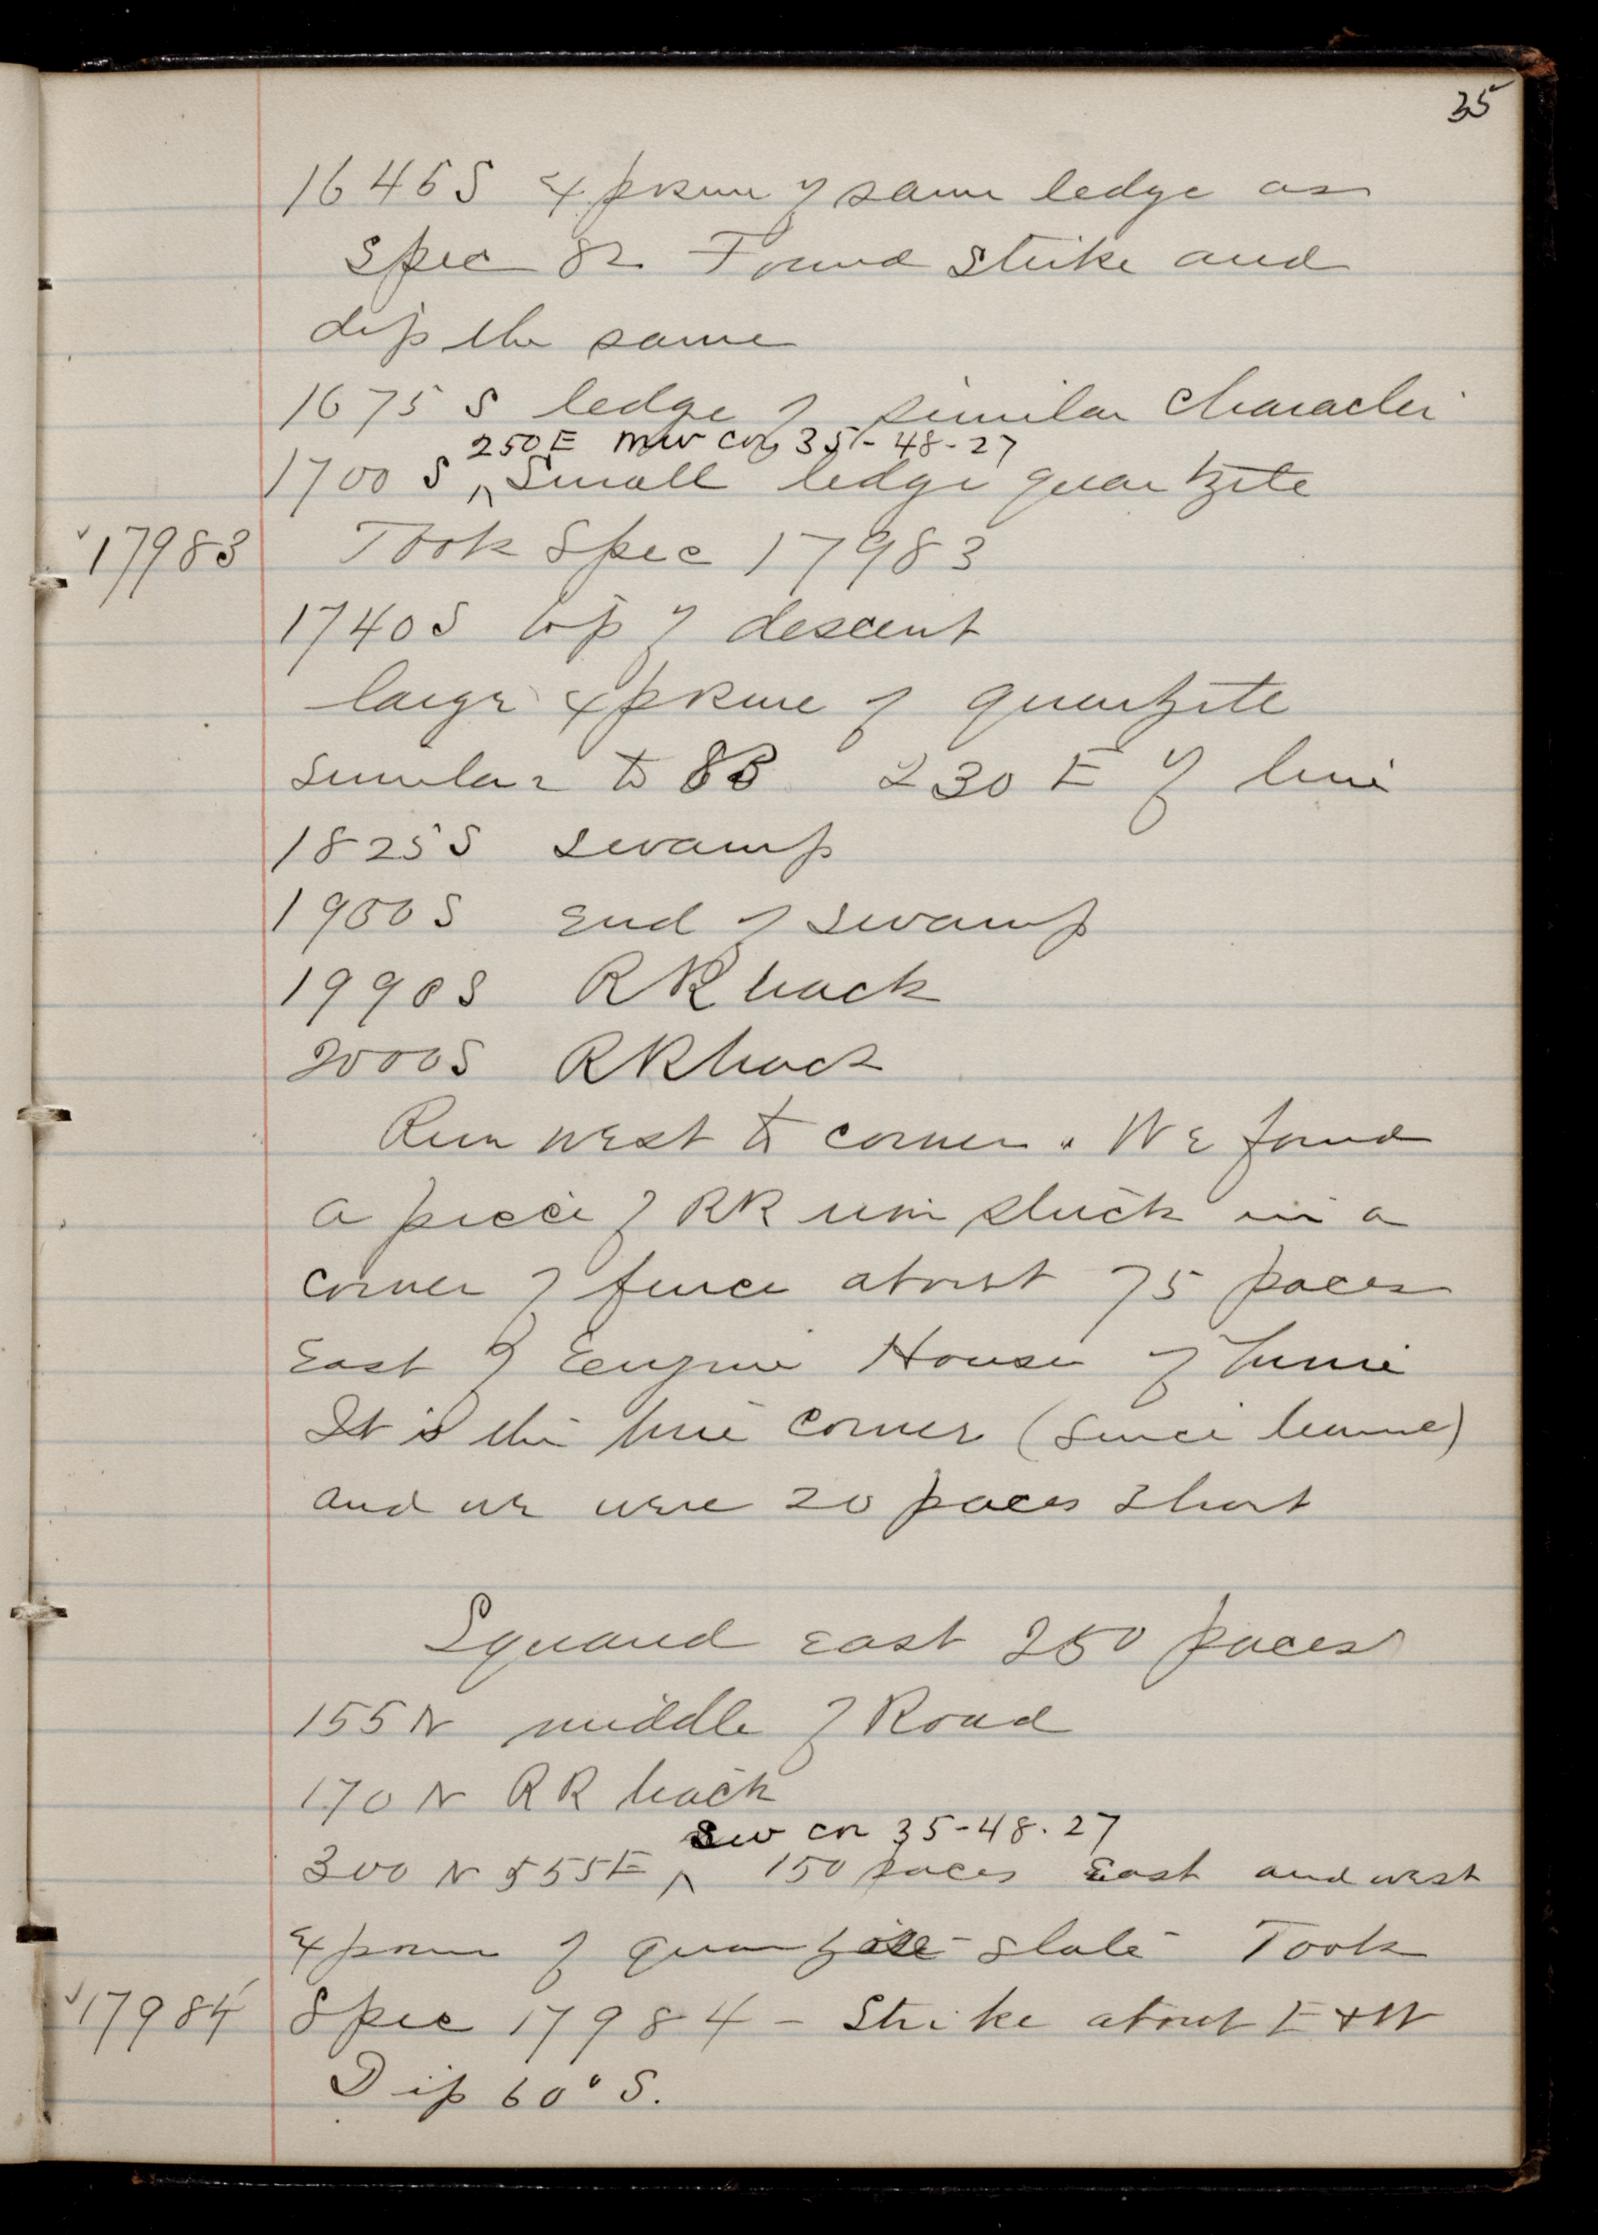 35
1645 S Exposure of same ledge as
Spec 82 Found strike and
dip the same
1675 S ledge of similar character
250 E nw cor 35-48-27
1700 S ^ Small ledge quartzite
17983 Took Spec 17983
1740 S top of descent
large exposure of quartzite
similar to 83 230 E of line
1825 S swamp
1900 S end of swamp
1990 S RR track
2000 S RR track
Run west to corner. We found
a piece of RR iron stuck in a
corner of fence about 75 paces
East of Engine House of mine
It is the true corner (since learned)
and we were 20 paces short
Squared east 250 paces
155 N middle of Road
170 N RR track
sw cor 35-48-27
300 N 555 E ^ 150 paces East and west
Exposure of quartzite slate Took
17984 Spec 17984 - Strike about E + W
Dip 60° S.